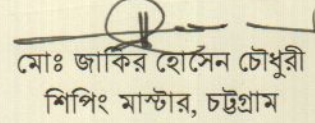 মোঃ জাকির হোসেন চৌধুরী
শিপিং মাস্টার, চট্টগ্রাম